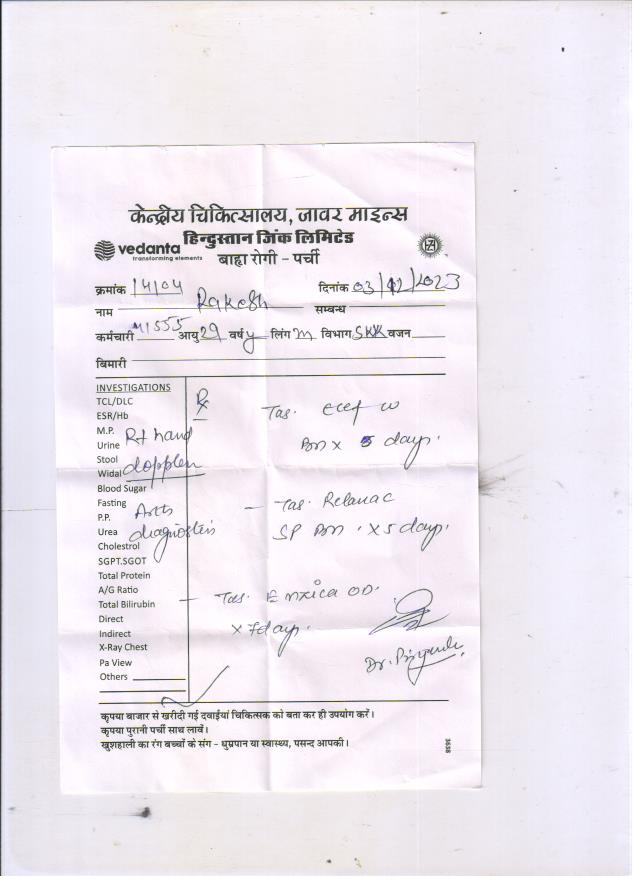 केन्द्रीय चिकित्सालय, जावर माइन्स
हिन्दुस्तान जिंक लिमिटेड
vedanta
transforming elements
बाह्य रोगी - पर्ची
क्रमांक 14104 दिनांक 03/12/2023
नाम Rakesh सम्बन्ध
कर्मचारी M1555 आयु 29 वर्ष y लिंग M विभाग SKK वजन
बिमारी
INVESTIGATIONS
TCL/DLC
ESR/Hb
M.P.
Urine
Stool
Widal
Blood Sugar
Fasting
P.P.
Urea
Cholestrol
SGPT.SGOT
Total Protein
A/G Ratio
Total Bilirubin
Direct
Indirect
X-Ray Chest
Pa View
Others
Rt hand
doppler
diagnostis
Rx
Tas.
BD x 5 days.
- Tas. Relanac
SP BD . x 5 days.
- Tas. OD.
x 7 days.
Dr.
कृपया बाजार से खरीदी गई दवाईयां चिकित्सक को बता कर ही उपयोग करें।
कृपया पुरानी पर्ची साथ लावें।
खुशहाली का रंग बच्चों के संग - धुम्रपान या स्वास्थ्य, पसन्द आपकी।
3638